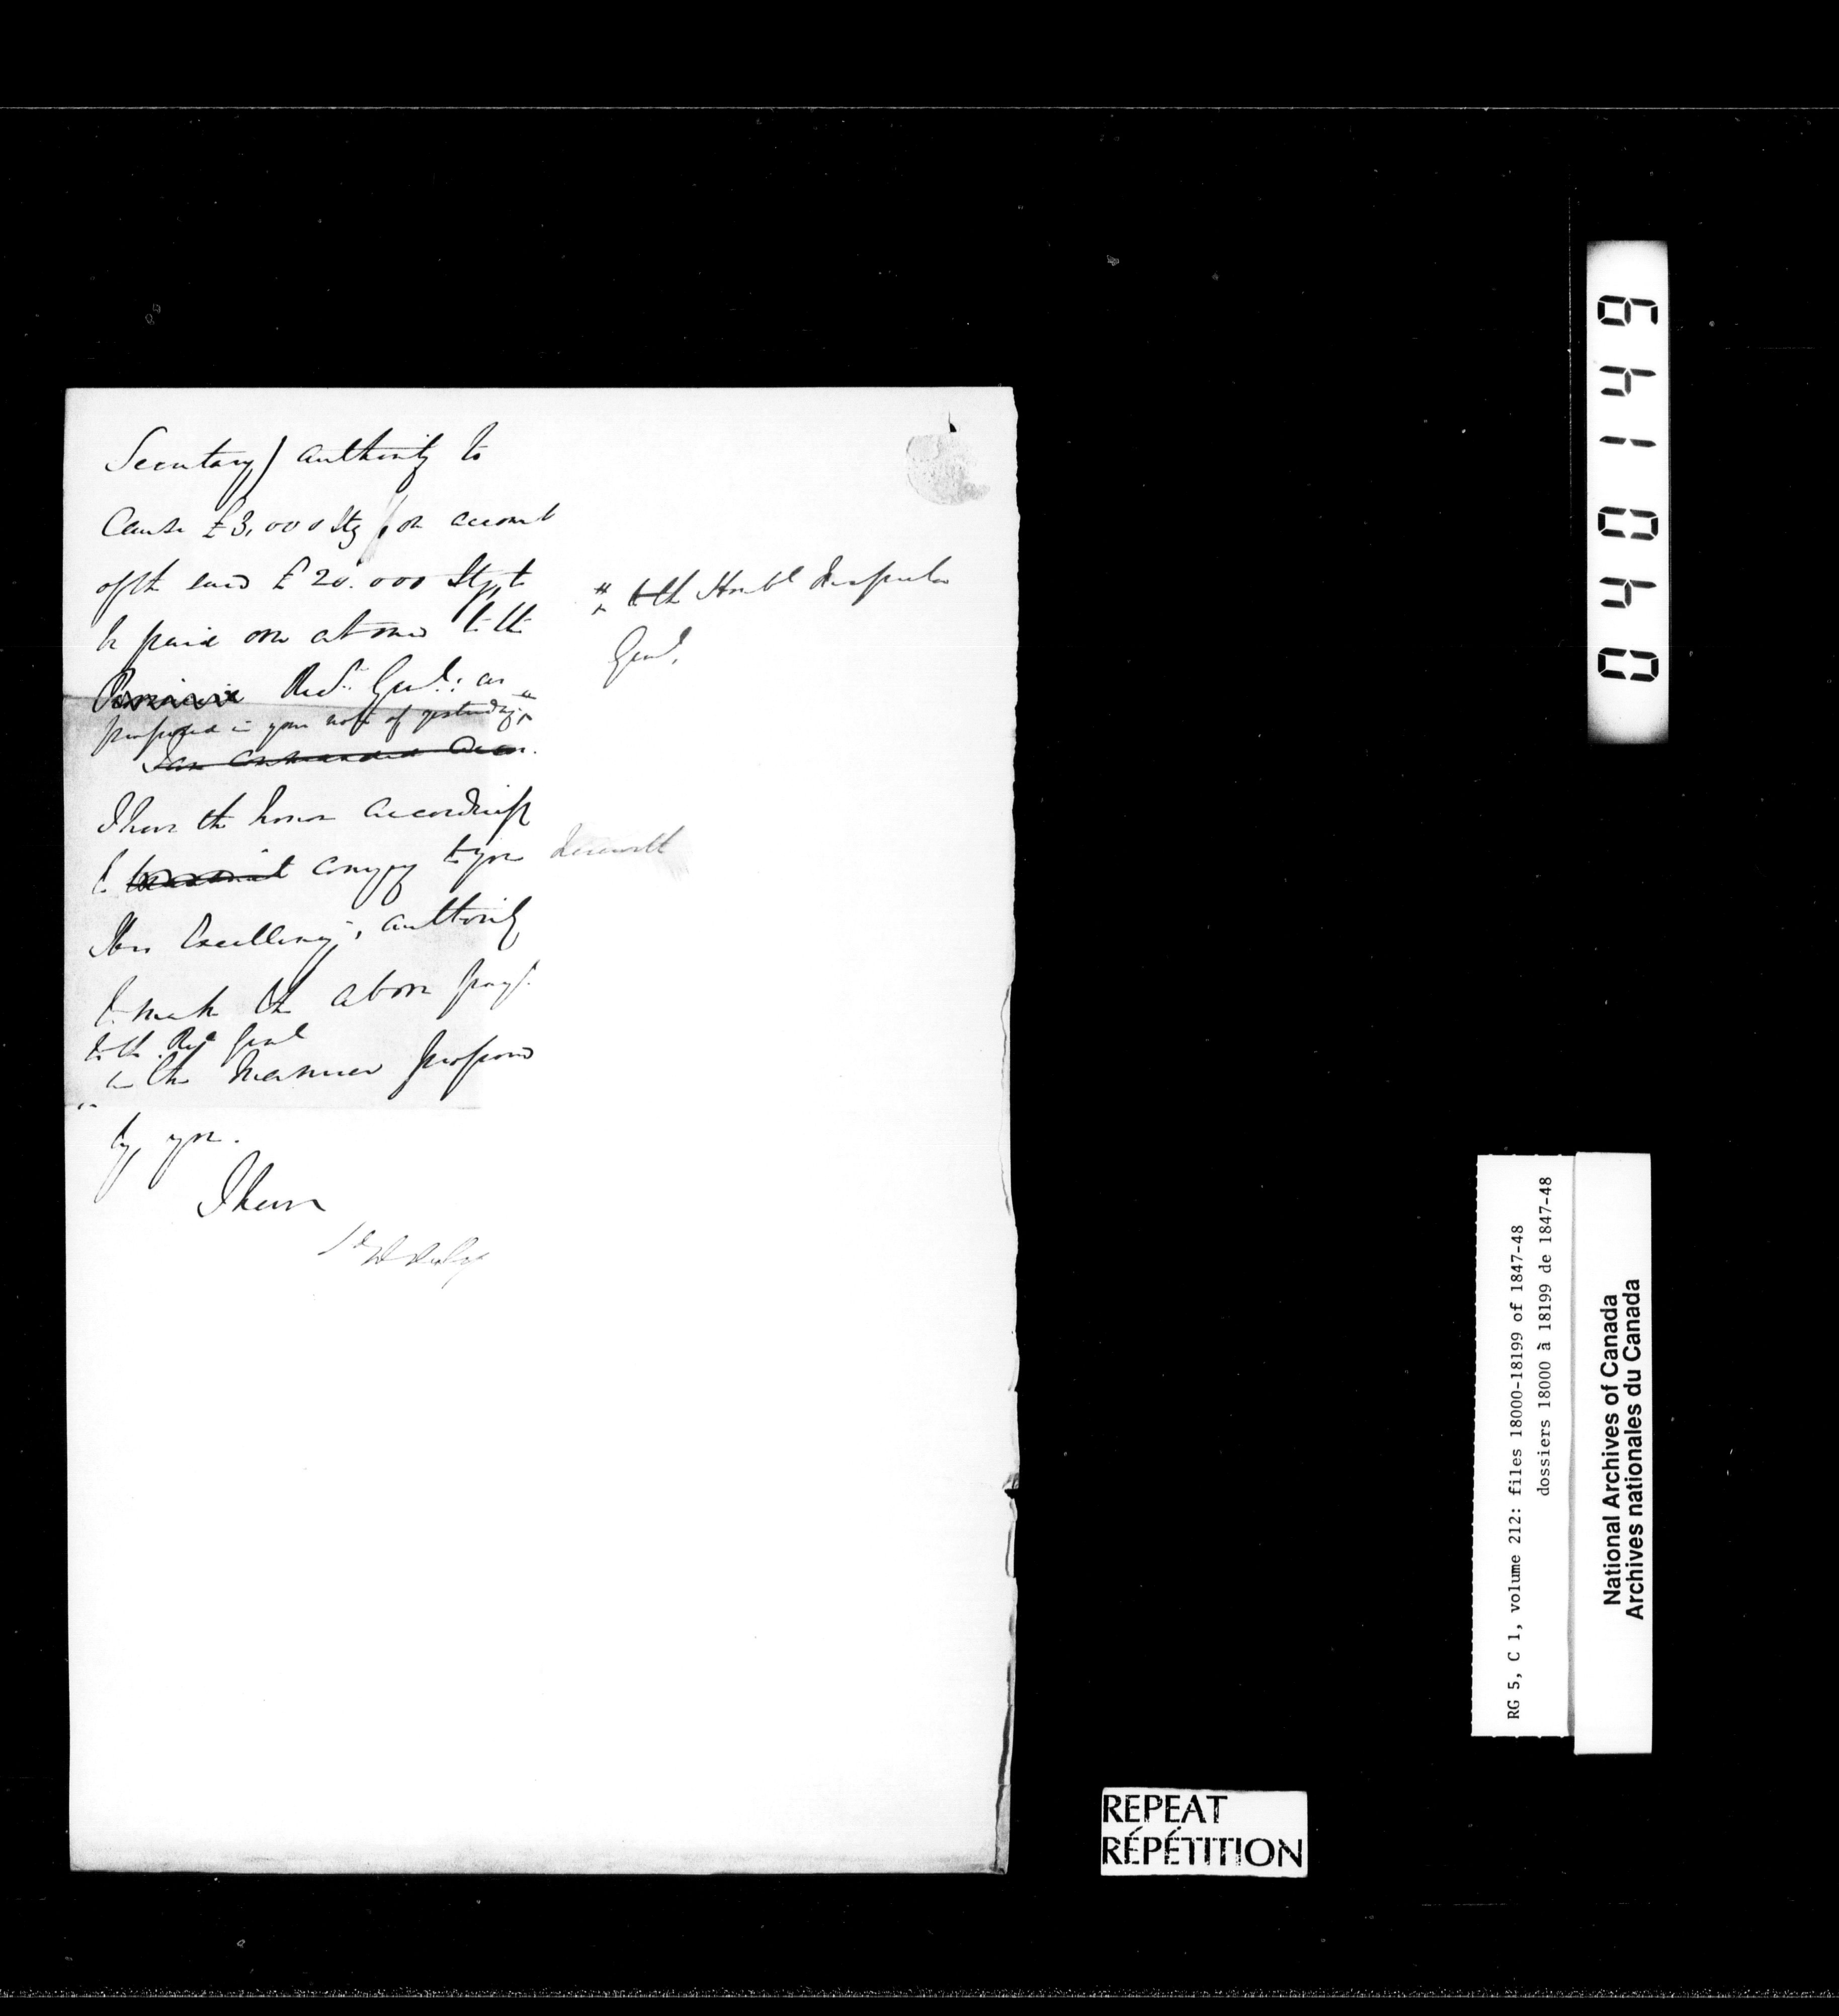 Secretary) authority to
Cause £3,000 Stg / on account
of the said £20.000 Stg, to
be paid over at once to the
Provincial Recr Genl: as
proposed in your note of yesterday #
I am commanded
I have the honor accordingly
to transmit convey to you
His Excellency's authority
to make the above payt.
to the Recr Genl
in the manner proposed
by you.
I have
# to the Honble Inspector
Genl.
REPEAT
RÉPÉTITION
RG 5, C 1, volume 212: files 18000-18199 of 1847-48
dossiers 18000 à 18199 de 1847-48
National Archives of Canada
Archives nationales du Canada
040149